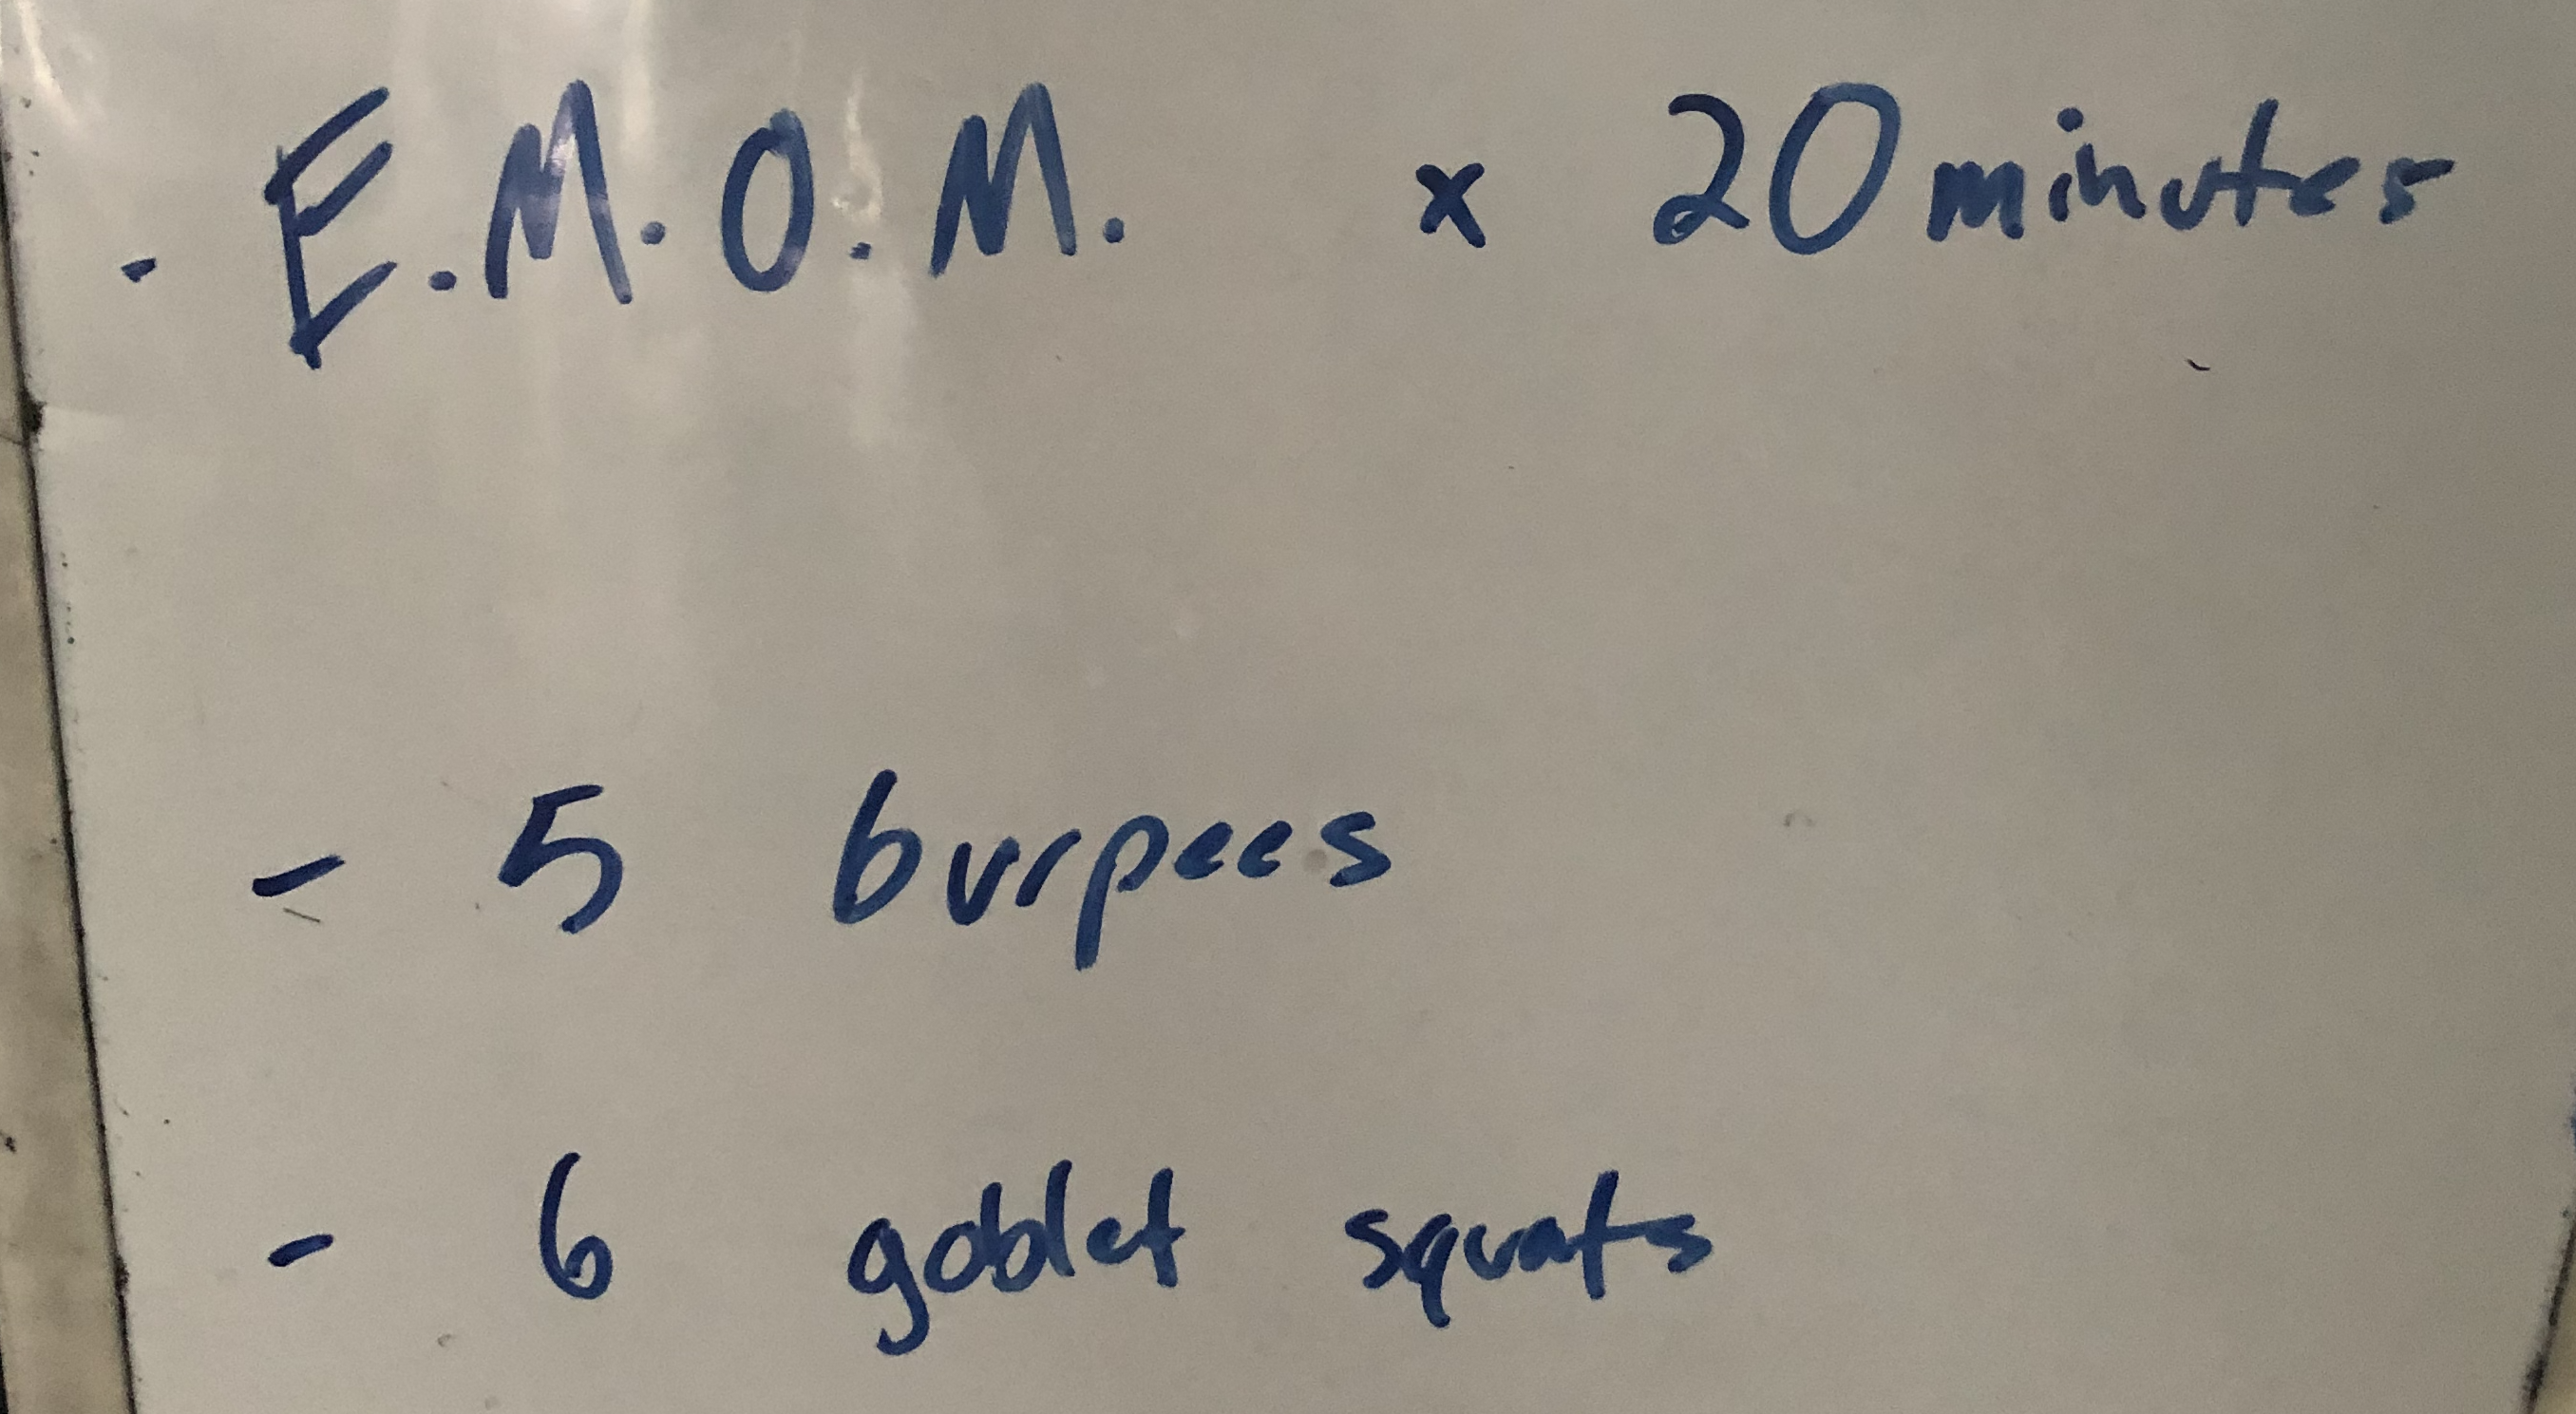 - E.M.O.M. x 20 minutes
- 5 burpees
- 6 goblet squats